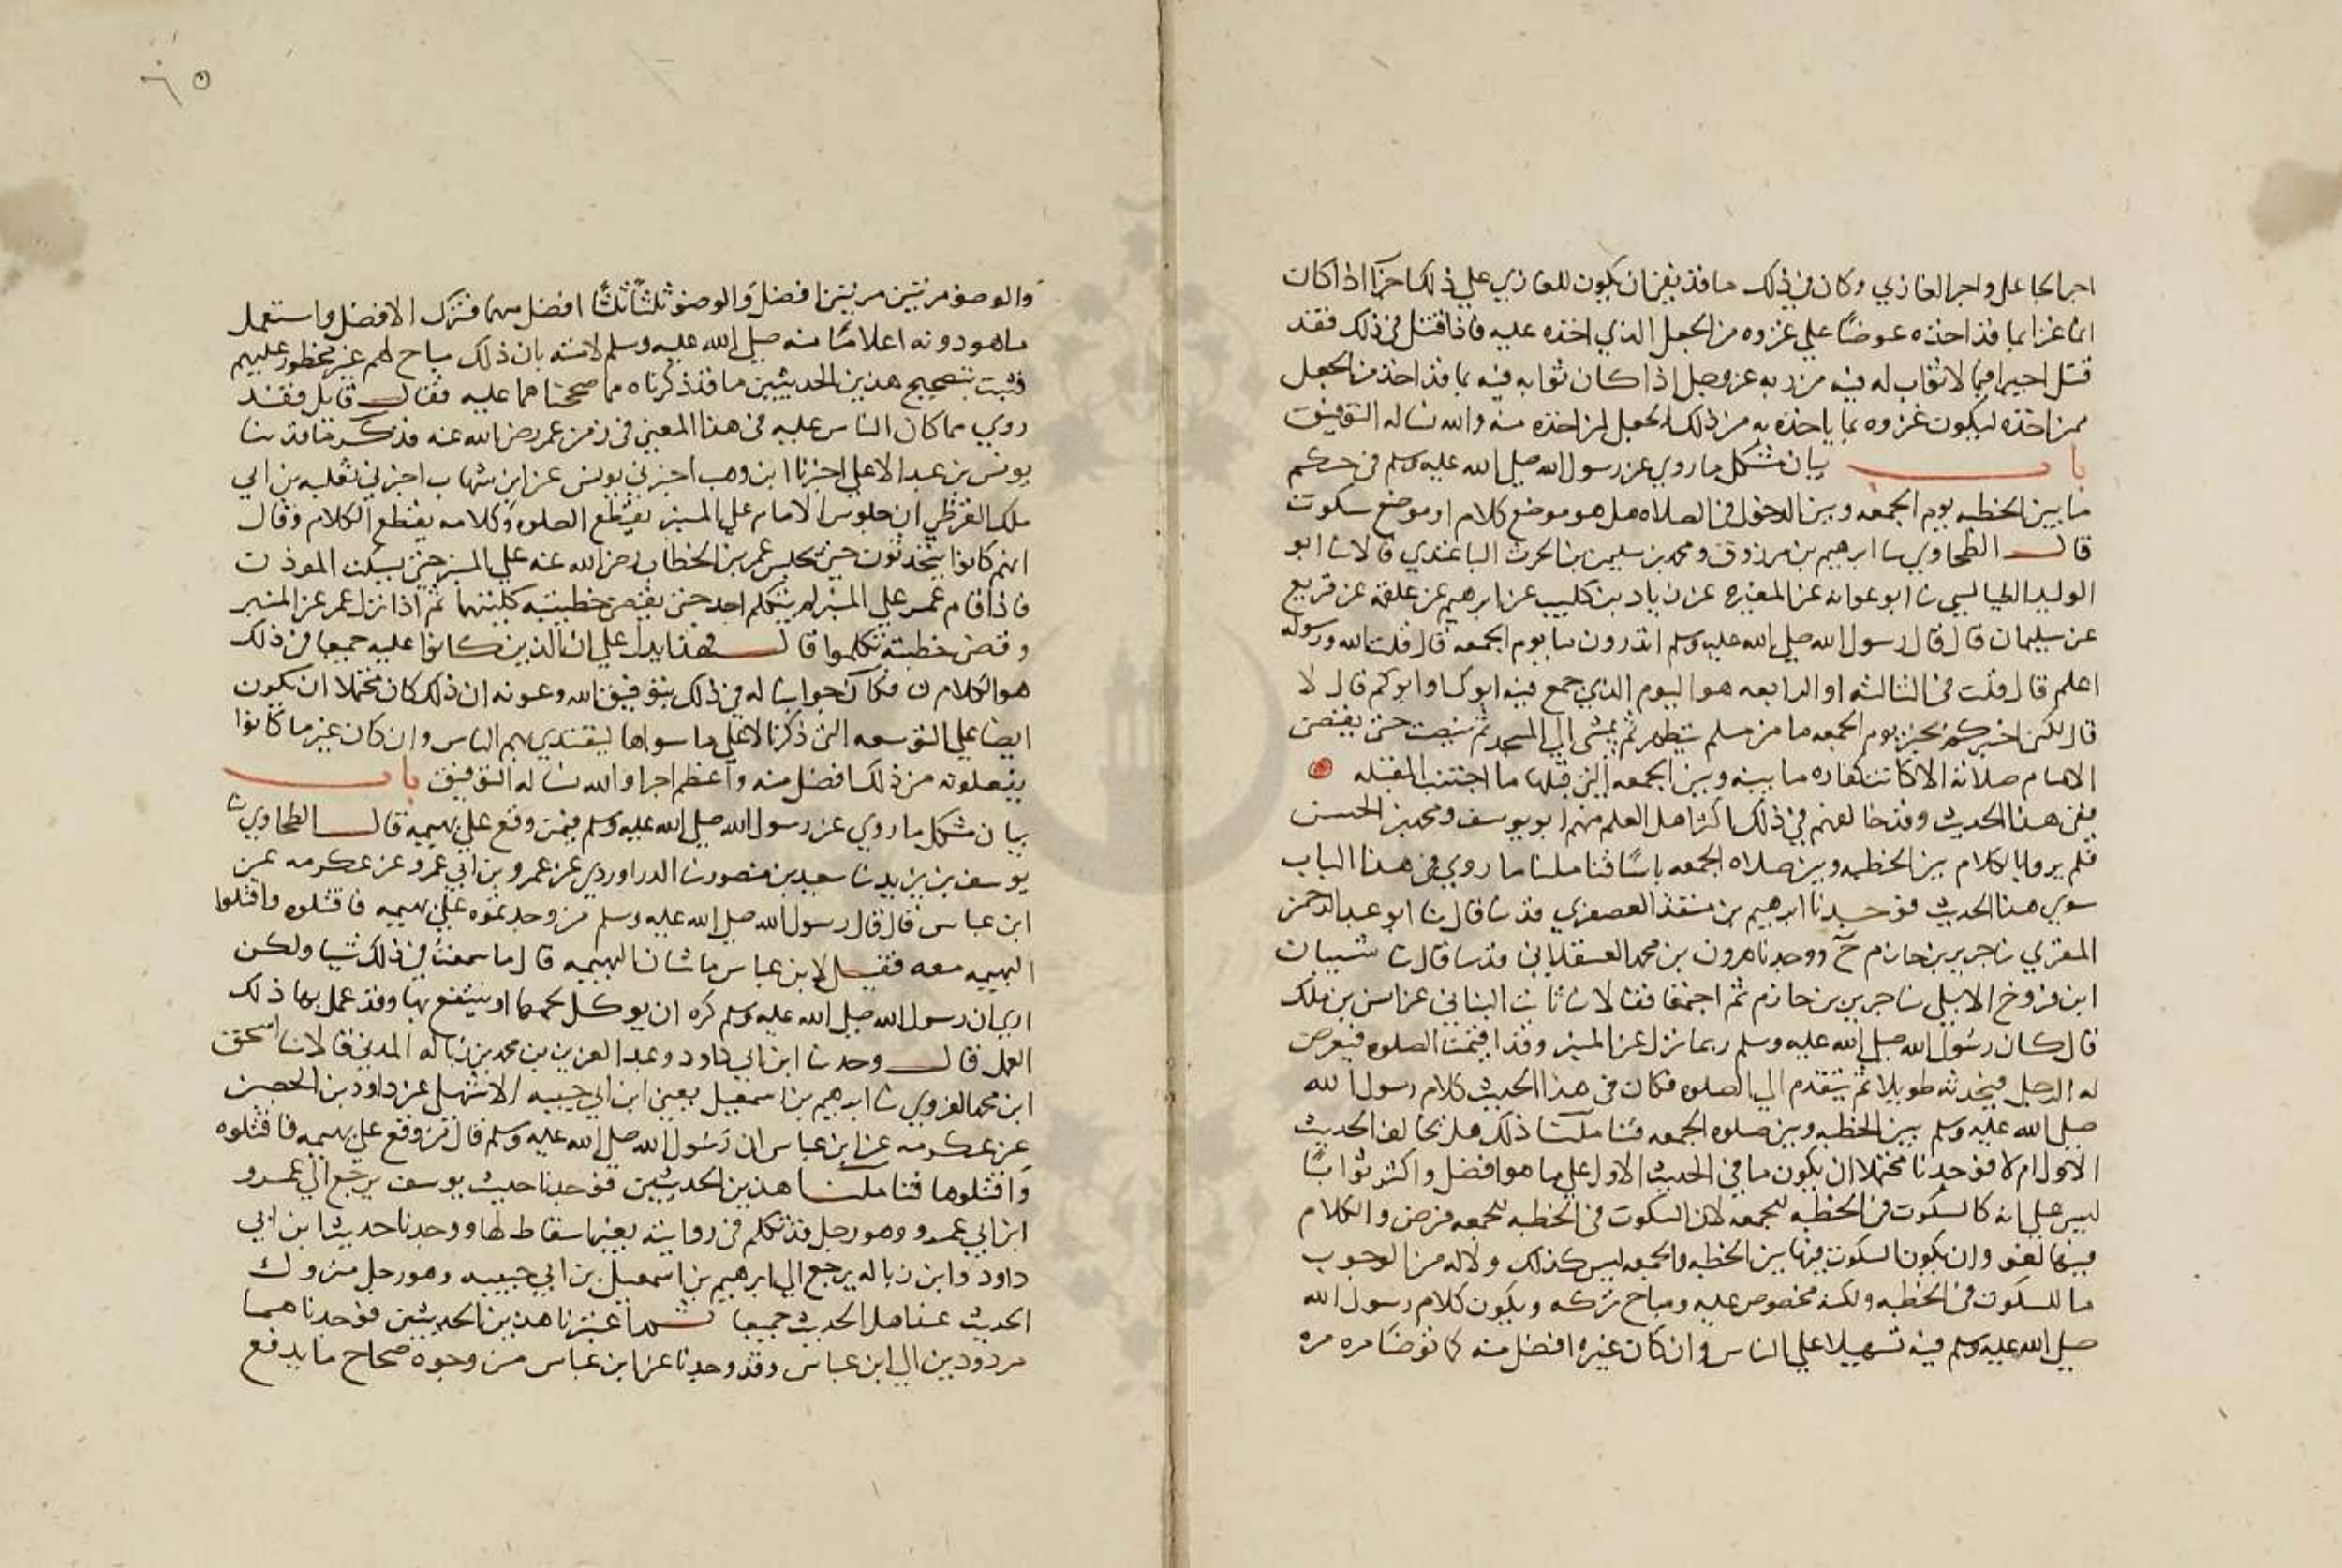 اجر الجاعل واجر الغازي وكان في ذلك ما قد يغني ان يكون للغازي علي ذلك اجرا اذا كان
انما غزا بما قد اخذه عوضا علي غزوه من الجعل الذي اخذه عليه فاذا قتل في ذلك فقد
قتل اجيرا فيما لا ثواب له فيه من ربه عز وجل اذا كان ثوابه فيه بما قد اخذ من الجعل
ممن اخذه ليكون غزوه بما ياخذه به من ذلك الجعل لمن اخذه منه والله نساله التوفيق
باب بيان مشكل ما روي عن رسول الله صلي الله عليه وسلم في حكم
ما بين الخطبه يوم الجمعه وبين الدخول في الصلاه هل هو موضع كلام او موضع سكوت
قال الطحاوي ثنا ابرهيم بن مرزوق ومحمد بن سليمن بن الحرث الباغندي قالا ثنا ابو
الوليد الطيالسي ثنا ابو عوانه عن المغيره عن زياد بن كليب عن ابرهيم عن علقمه عن قرثع
عن سليمان قال قال رسول الله صلي الله عليه وسلم اتدرون ما يوم الجمعه قال قلت الله ورسوله
اعلم قال قلت في الثالثه او الرابعه هو اليوم الذي جمع فيه ابوك او ابوكم قال لا
قال لكن اخبركم بخبر يوم الجمعه ما من مسلم يتطهر ثم يمشي الي المسجد ثم ينصت حتى يقضي
الامام صلاته الا كانت كفاره ما بينه وبين الجمعه التي قبلها ما اجتنب المقتله
ففي هذا الحديث وقد خالفهم في ذلك اكثر اهل العلم منهم ابو يوسف ومحمد بن الحسن
فلم يروا بالكلام بين الخطبه وبين صلاه الجمعه باسًا فتاملنا ما روي في هذا الباب
سوي هذا الحديث فوجدنا ابرهيم بن منقذ العصفري قد ثنا قال ثنا ابو عبد الرحمن
المقري ثنا جرير بن حازم ح ووجدنا هرون بن محمد العسقلاني قد ثنا قال ثنا شيبان
ابن فروخ الابلي ثنا جرير بن حازم ثم اجتمعا فقالا ثنا ثابت البناني عن انس بن ملك
قال كان رسول الله صلي الله عليه وسلم ربما نزل عن المنبر وقد اقيمت الصلوه فيعرض
له الرجل فيحدثه طويلا ثم يتقدم الي الصلوه فكان في هذا الحديث كلام رسول الله
صلي الله عليه وسلم بين الخطبه وبين صلوه الجمعه فتاملنا ذلك هل يخالف الحديث
الاول ام لا فوجدنا محتملا ان يكون ما في الحديث الاول علي ما هو افضل واكثر ثوابًا
ليس علي انه كالسكوت في الخطبه للجمعه لان السكوت في الخطبه للجمعه فرض والكلام
فيها لغو وان يكون السكوت فيما بين الخطبه والجمعه ليس كذلك ولا له من الوجوب
ما للسكوت في الخطبه ولكنه مخصوص عليه ومباح تركه ويكون كلام رسول الله
صلي الله عليه وسلم فيه تسهيلا علي الناس وان كان غيره افضل منه كما توضا مره مره
والوضو مرتين مرتين افضل والوضو ثلثًا ثلثًا افضل منهما فترك الافضل واستعمل
ما هو دونه اعلامًا منه صلي الله عليه وسلم لامته بان ذلك مباح لهم غير محظور عليهم
فثبت بتصحيح هذين الحديثين ما قد ذكرناه مما صححناهما عليه فقال قايل فقد
روي مما كان الناس عليه في هذا المعني في زمن عمر رضي الله عنه فذكر ما قد ثنا
يونس بن عبد الاعلي اخبرنا ابن وهب اخبرني يونس عن ابن شهاب اخبرني ثعلبه بن ابي
ملك القرظي ان جلوس الامام علي المنبر يقطع الصلوه وكلامه يقطع الكلام وقال
انهم كانوا يتحدثون حين يجلس عمر بن الخطاب رضي الله عنه علي المنبر حتى يسكت الموذن
فاذا قام عمر علي المنبر لم يتكلم احد حتى يقضي خطبتيه كلتيهما ثم اذا نزل عمر عن المنبر
وقضى خطبته تكلموا قال فهذا يدل علي ان الذين كانوا عليه جميعا في ذلك
هو الكلام فكان جوابنا له في ذلك بتوفيق الله وعونه ان ذلك كان محتملا ان يكون
ايضا علي التوسعه التي ذكرنا لا علي ما سواها ليقتدي بهم الناس وان كان غير ما كانوا
يفعلونه من ذلك افضل منه واعظم اجرا والله نساله التوفيق باب
بيان مشكل ما روي عن رسول الله صلي الله عليه وسلم فيمن وقع علي بهيمه قال الطحاوي ثنا
يوسف بن يزيد ثنا سعيد بن منصور ثنا الدراوردي عن عمرو بن ابي عمرو عن عكرمه عن
ابن عباس قال قال رسول الله صلي الله عليه وسلم من وجدتموه علي بهيمه فاقتلوه واقتلوا
البهيمه معه فقيل لابن عباس ما شان البهيمه قال ما سمعت في ذلك شيا ولكن
اري ان رسول الله صلي الله عليه وسلم كره ان يوكل لحمها او ينتفع بها وقد عمل بها ذلك
العمل قال وحدثنا ابن ابي داود وعبد العزيز بن محمد بن زباله المدني قالا ثنا اسحق
ابن محمد الفروي ثنا ابرهيم بن اسمعيل يعني ابن ابي حبيبه الاشهلي عن داود بن الحصين
عن عكرمه عن ابن عباس ان رسول الله صلي الله عليه وسلم قال من وقع علي بهيمه فاقتلوه
واقتلوها فتاملنا هذين الحديثين فوجدنا حديث يوسف يرجع الي عمرو
ابن ابي عمرو وهو رجل قد تكلم في روايته بغير اسقاط لها ووجدنا حديث ابن ابي
داود وابن زباله يرجع الي ابرهيم بن اسمعيل بن ابي حبيبه وهو رجل متروك
الحديث عند اهل الحديث جميعا ثم اعتبرنا هذين الحديثين فوجدناهما
مردودين الي ابن عباس وقد وجدنا عن ابن عباس من وجوه صحاح ما يدفع